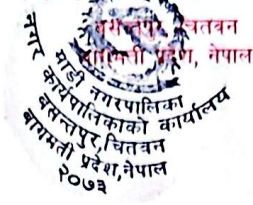 वसन्तपुर, चितवन
बागमती प्रदेश, नेपाल
माडी नगरपालिका
नगर कार्यपालिकाको कार्यालय
वसन्तपुर,चितवन
बागमती प्रदेश,नेपाल
२०७३